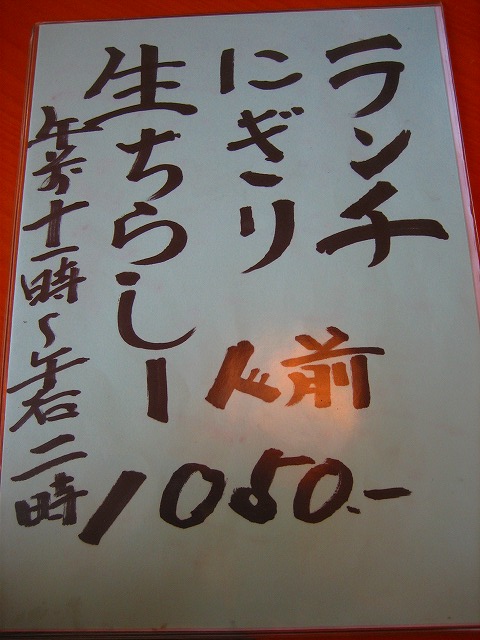 ランチ
にぎり
生ちらし
一人前
1050.-
午前十一時〜午后二時